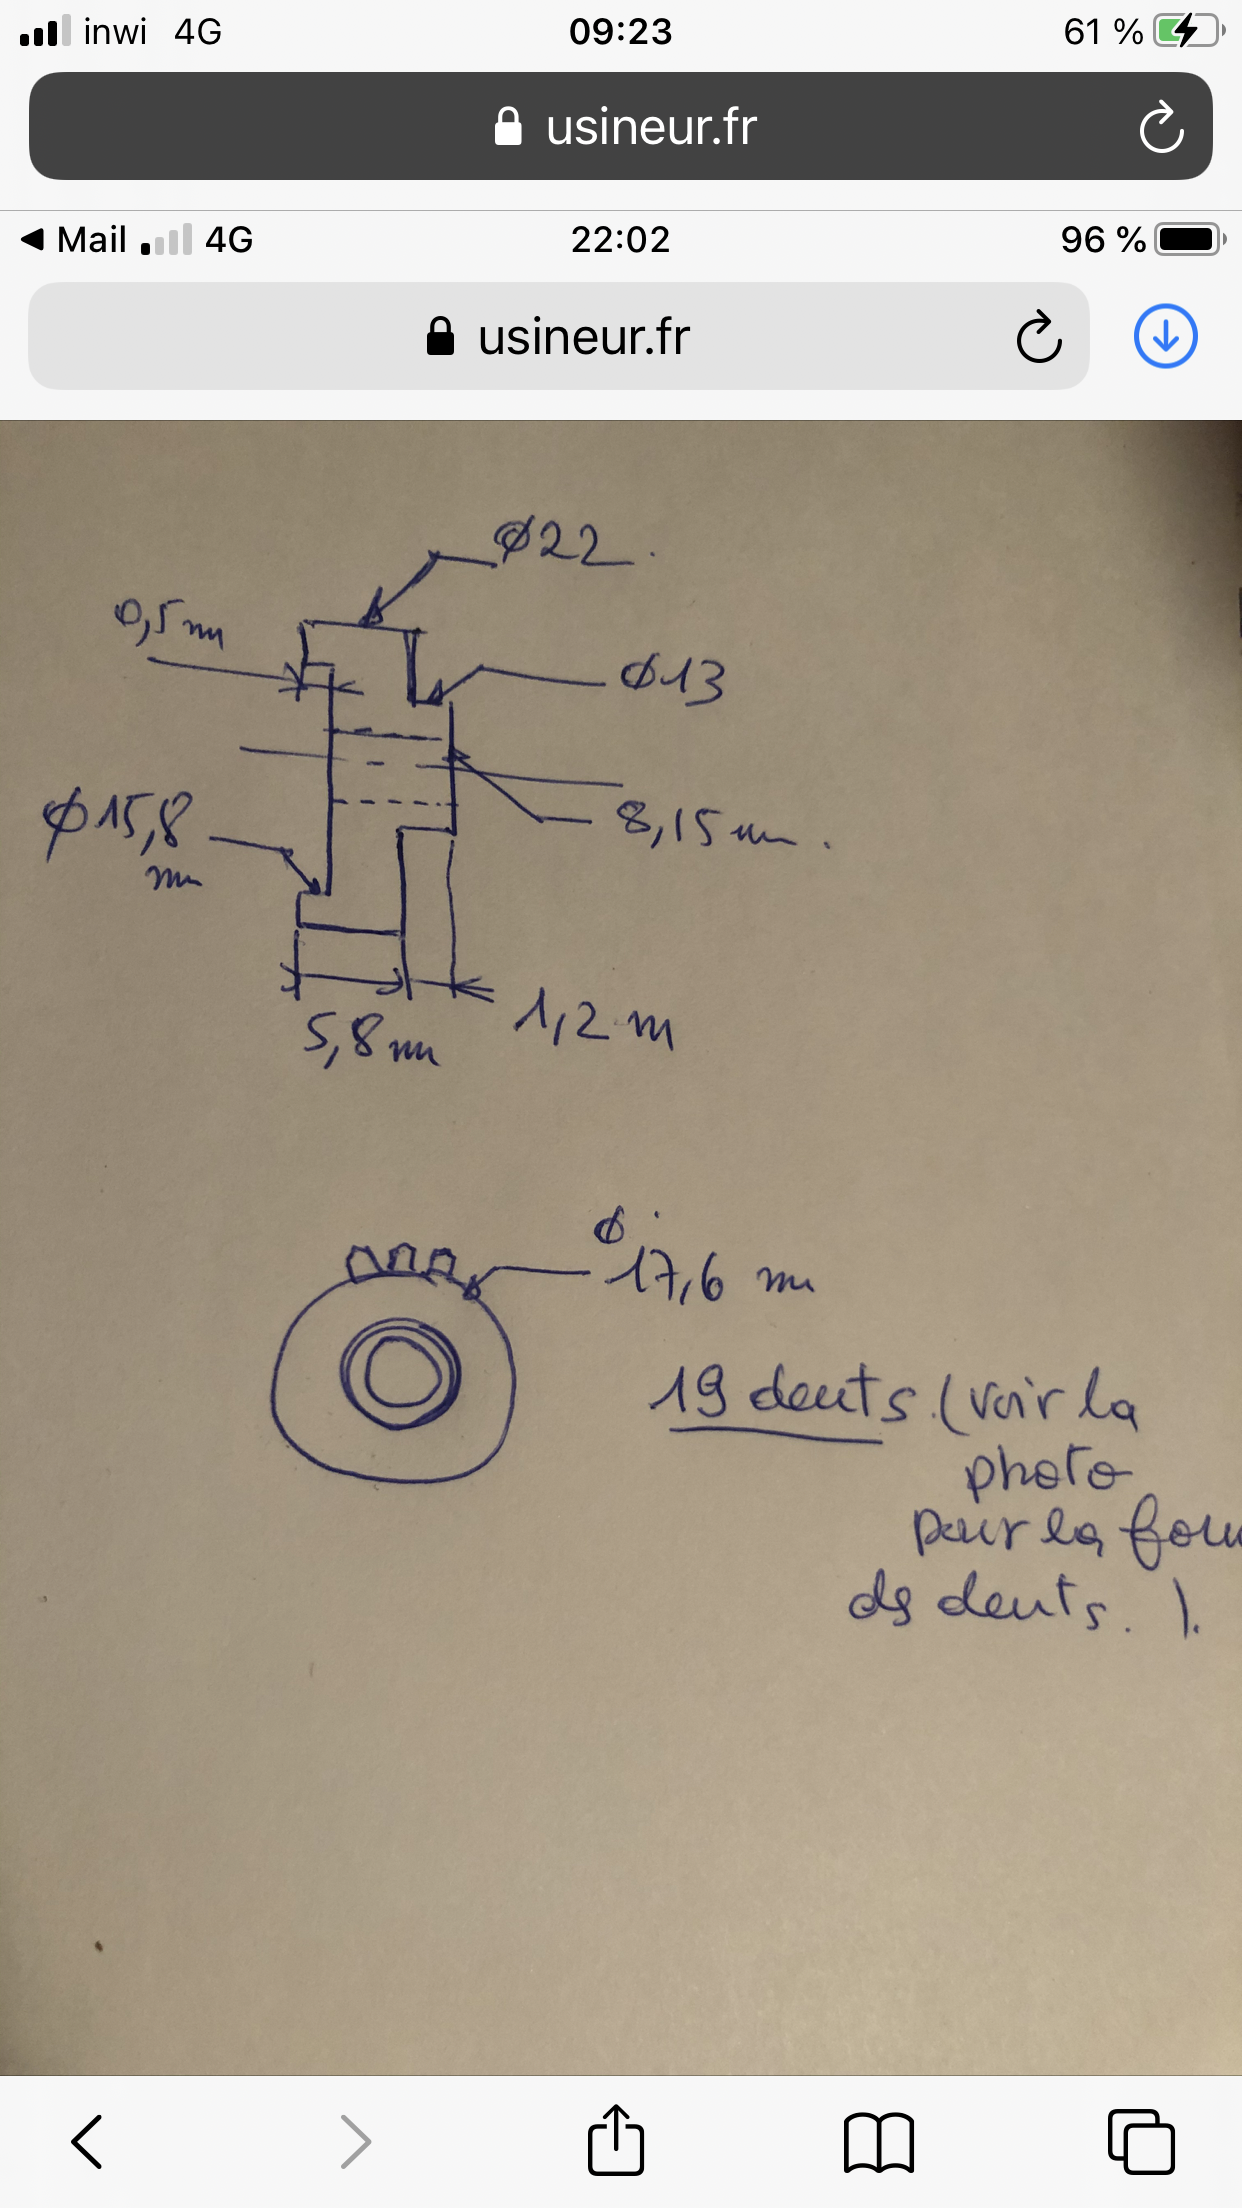 inwi 4G 09:23 61 %
usineur.fr
Mail 4G 22:02 96 %
usineur.fr
ø22.
0,5 mm
ø13
ø15,8
mm
8,15 mm.
5,8 mm
1,2 m
ø
17,6 mm
19 dents. (voir la
photo
pour la
de dents. ).